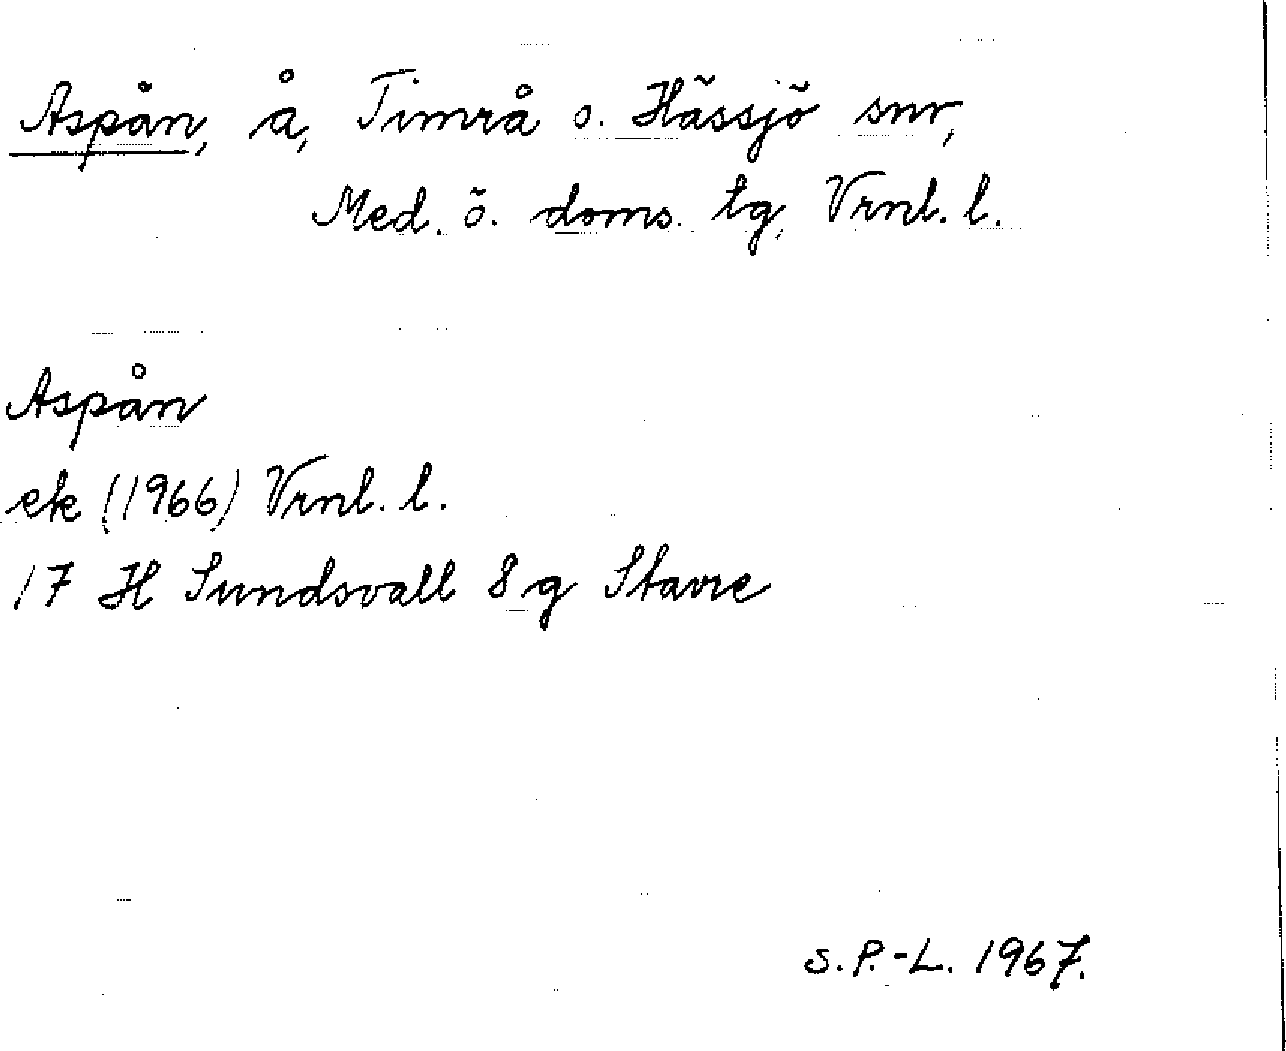 Aspån, å, Timrå o. Hässjö snr,
Med. ö. doms. tg, Vrnl. l.
Aspån
ek (1966) Vrnl. l.
17 H Sundsvall 8 g Stavre
S.P.-L. 1967.